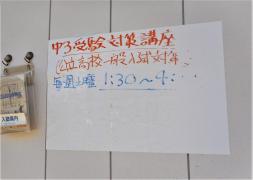 中3受験対策講座
公立高校一般入試対策
毎週土曜 1:30～4:
入塾案内